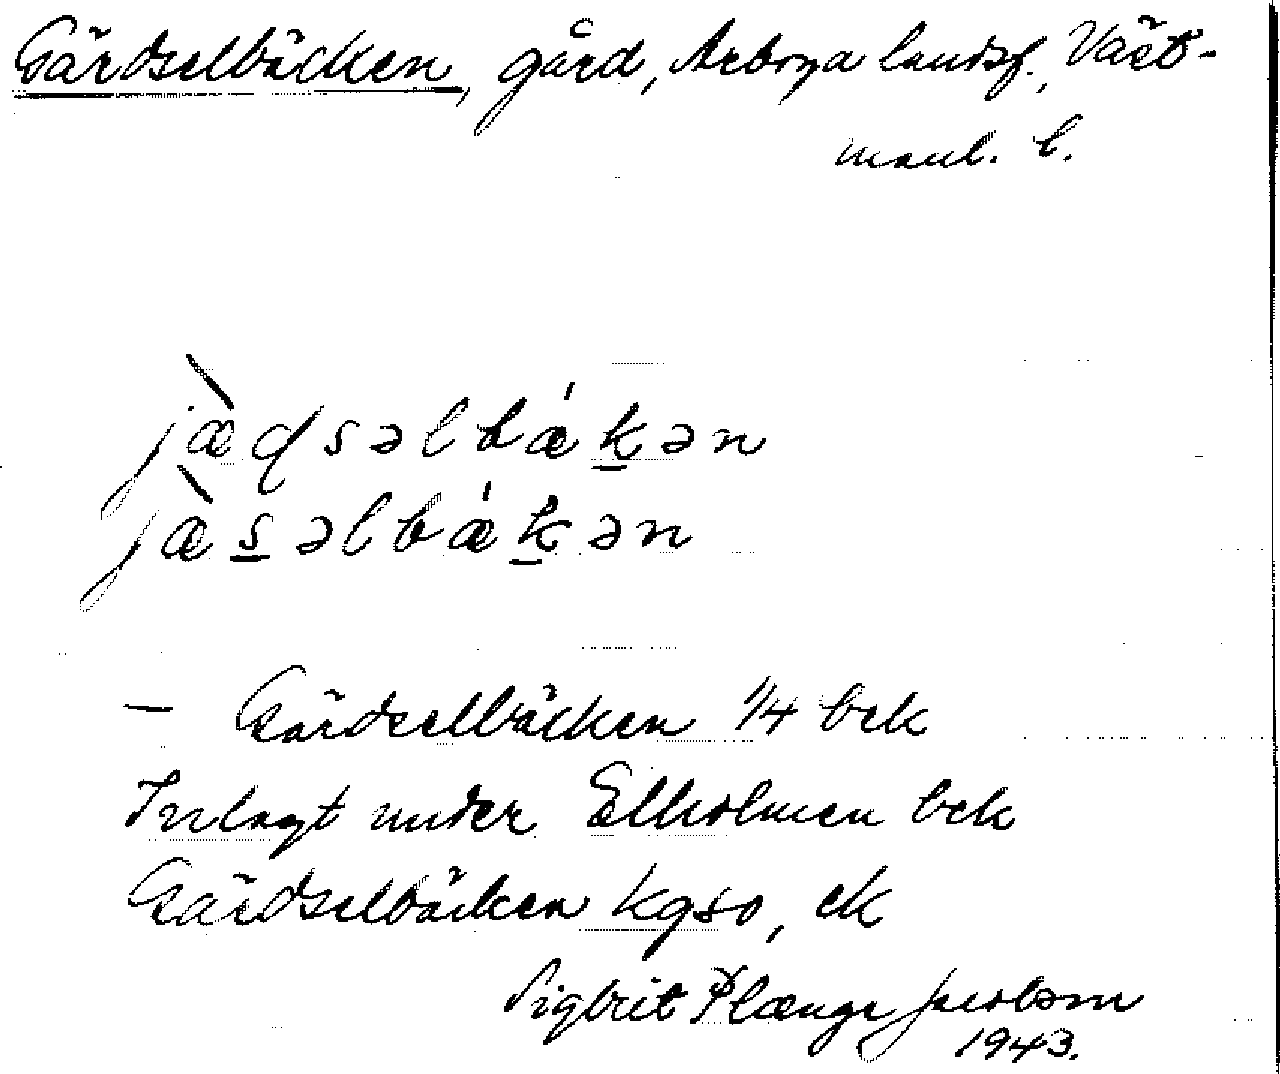 Gärdselbäcken, gård, Arboga landsf., Väst-
manl. l.
jæ̀dsəlbǽkən
jæ̀səlbǽkən
— Gärdselbäcken 1/4 bck
Inlagt under Ellholmen bck
Gärdselbäcken kgso, ek
Sigbrit Plænge Jacobson
1943.